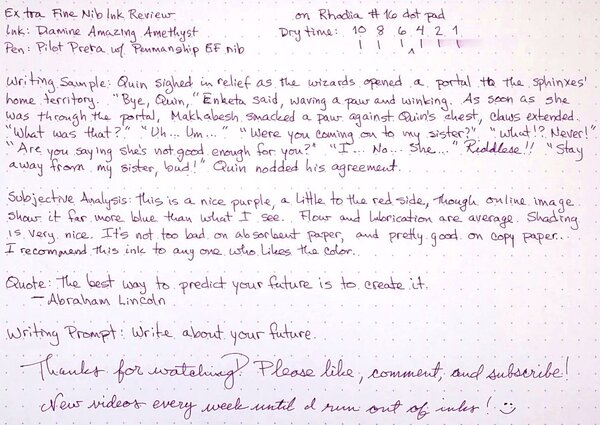 Extra Fine Nib Ink Review on Rhodia #16 dot pad
Ink: Diamine Amazing Amethyst Dry time: 10 8 6 4 2 1
Pen: Pilot Prera w/ Penmanship EF nib
Writing Sample: Quin sighed in relief as the wizards opened a portal to the sphinxes'
home territory. "Bye, Quin," Enketa said, waving a paw and winking. As soon as she
was through the portal, Makhabesh smacked a paw against Quin's chest, claws extended.
"What was that?" "Uh... Um..." "Were you coming on to my sister?" "What!? Never!"
"Are you saying she's not good enough for you?" "I... No... She..." Riddlese!! "Stay
away from my sister, bud!" Quin nodded his agreement.
Subjective Analysis: This is a nice purple, a little to the red side, though online image
show it far more blue than what I see. Flow and lubrication are average. Shading
is very nice. It's not too bad on absorbent paper, and pretty good on copy paper.
I recommend this ink to any one who likes the color.
Quote: The best way to predict your future is to create it.
— Abraham Lincoln
Writing Prompt: Write about your future.
Thanks for watching! Please like, comment, and subscribe!
New videos every week until I run out of inks! :)